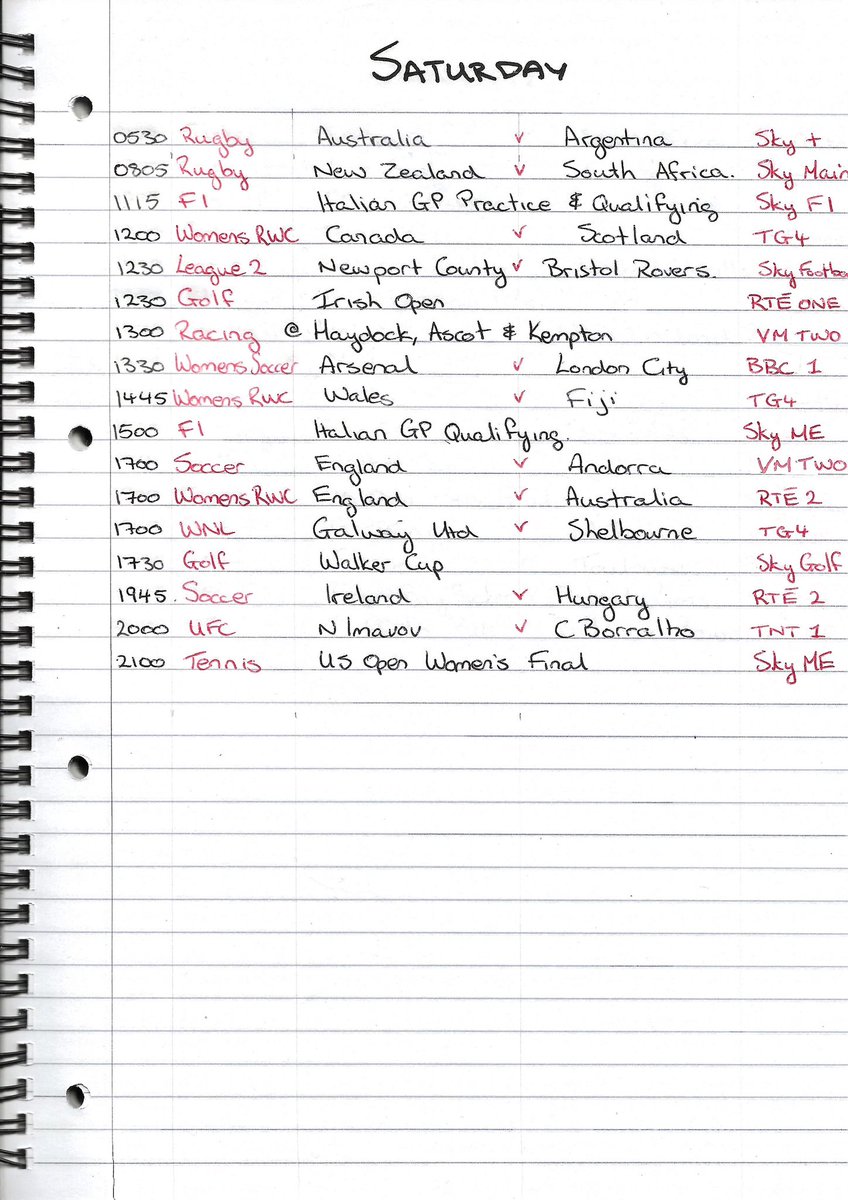 SATURDAY
0530 Rugby Australia v Argentina Sky +
0805 Rugby New Zealand v South Africa. Sky Main
1115 F1 Italian GP Practice & Qualifying Sky F1
1200 Womens RWC Canada v Scotland TG4
1230 League 2 Newport County v Bristol Rovers. Sky Footba
1230 Golf Irish Open RTÉ ONE
1300 Racing @ Haydock, Ascot & Kempton VM TWO
1330 Womens Soccer Arsenal v London City BBC 1
1445 Womens RWC Wales v Fiji TG4
1500 F1 Italian GP Qualifying. Sky ME
1700 Soccer England v Andorra VM TWO
1700 Womens RWC England v Australia RTÉ 2
1700 WNL Galway Utd v Shelbourne TG4
1730 Golf Walker Cup Sky Golf
1945. Soccer Ireland v Hungary RTÉ 2
2000 UFC N Imavov v C Borralho TNT 1
2100 Tennis US Open Women's Final Sky ME